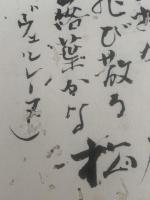 飛び散る
松
落葉かな
(ヴェルレーヌ)